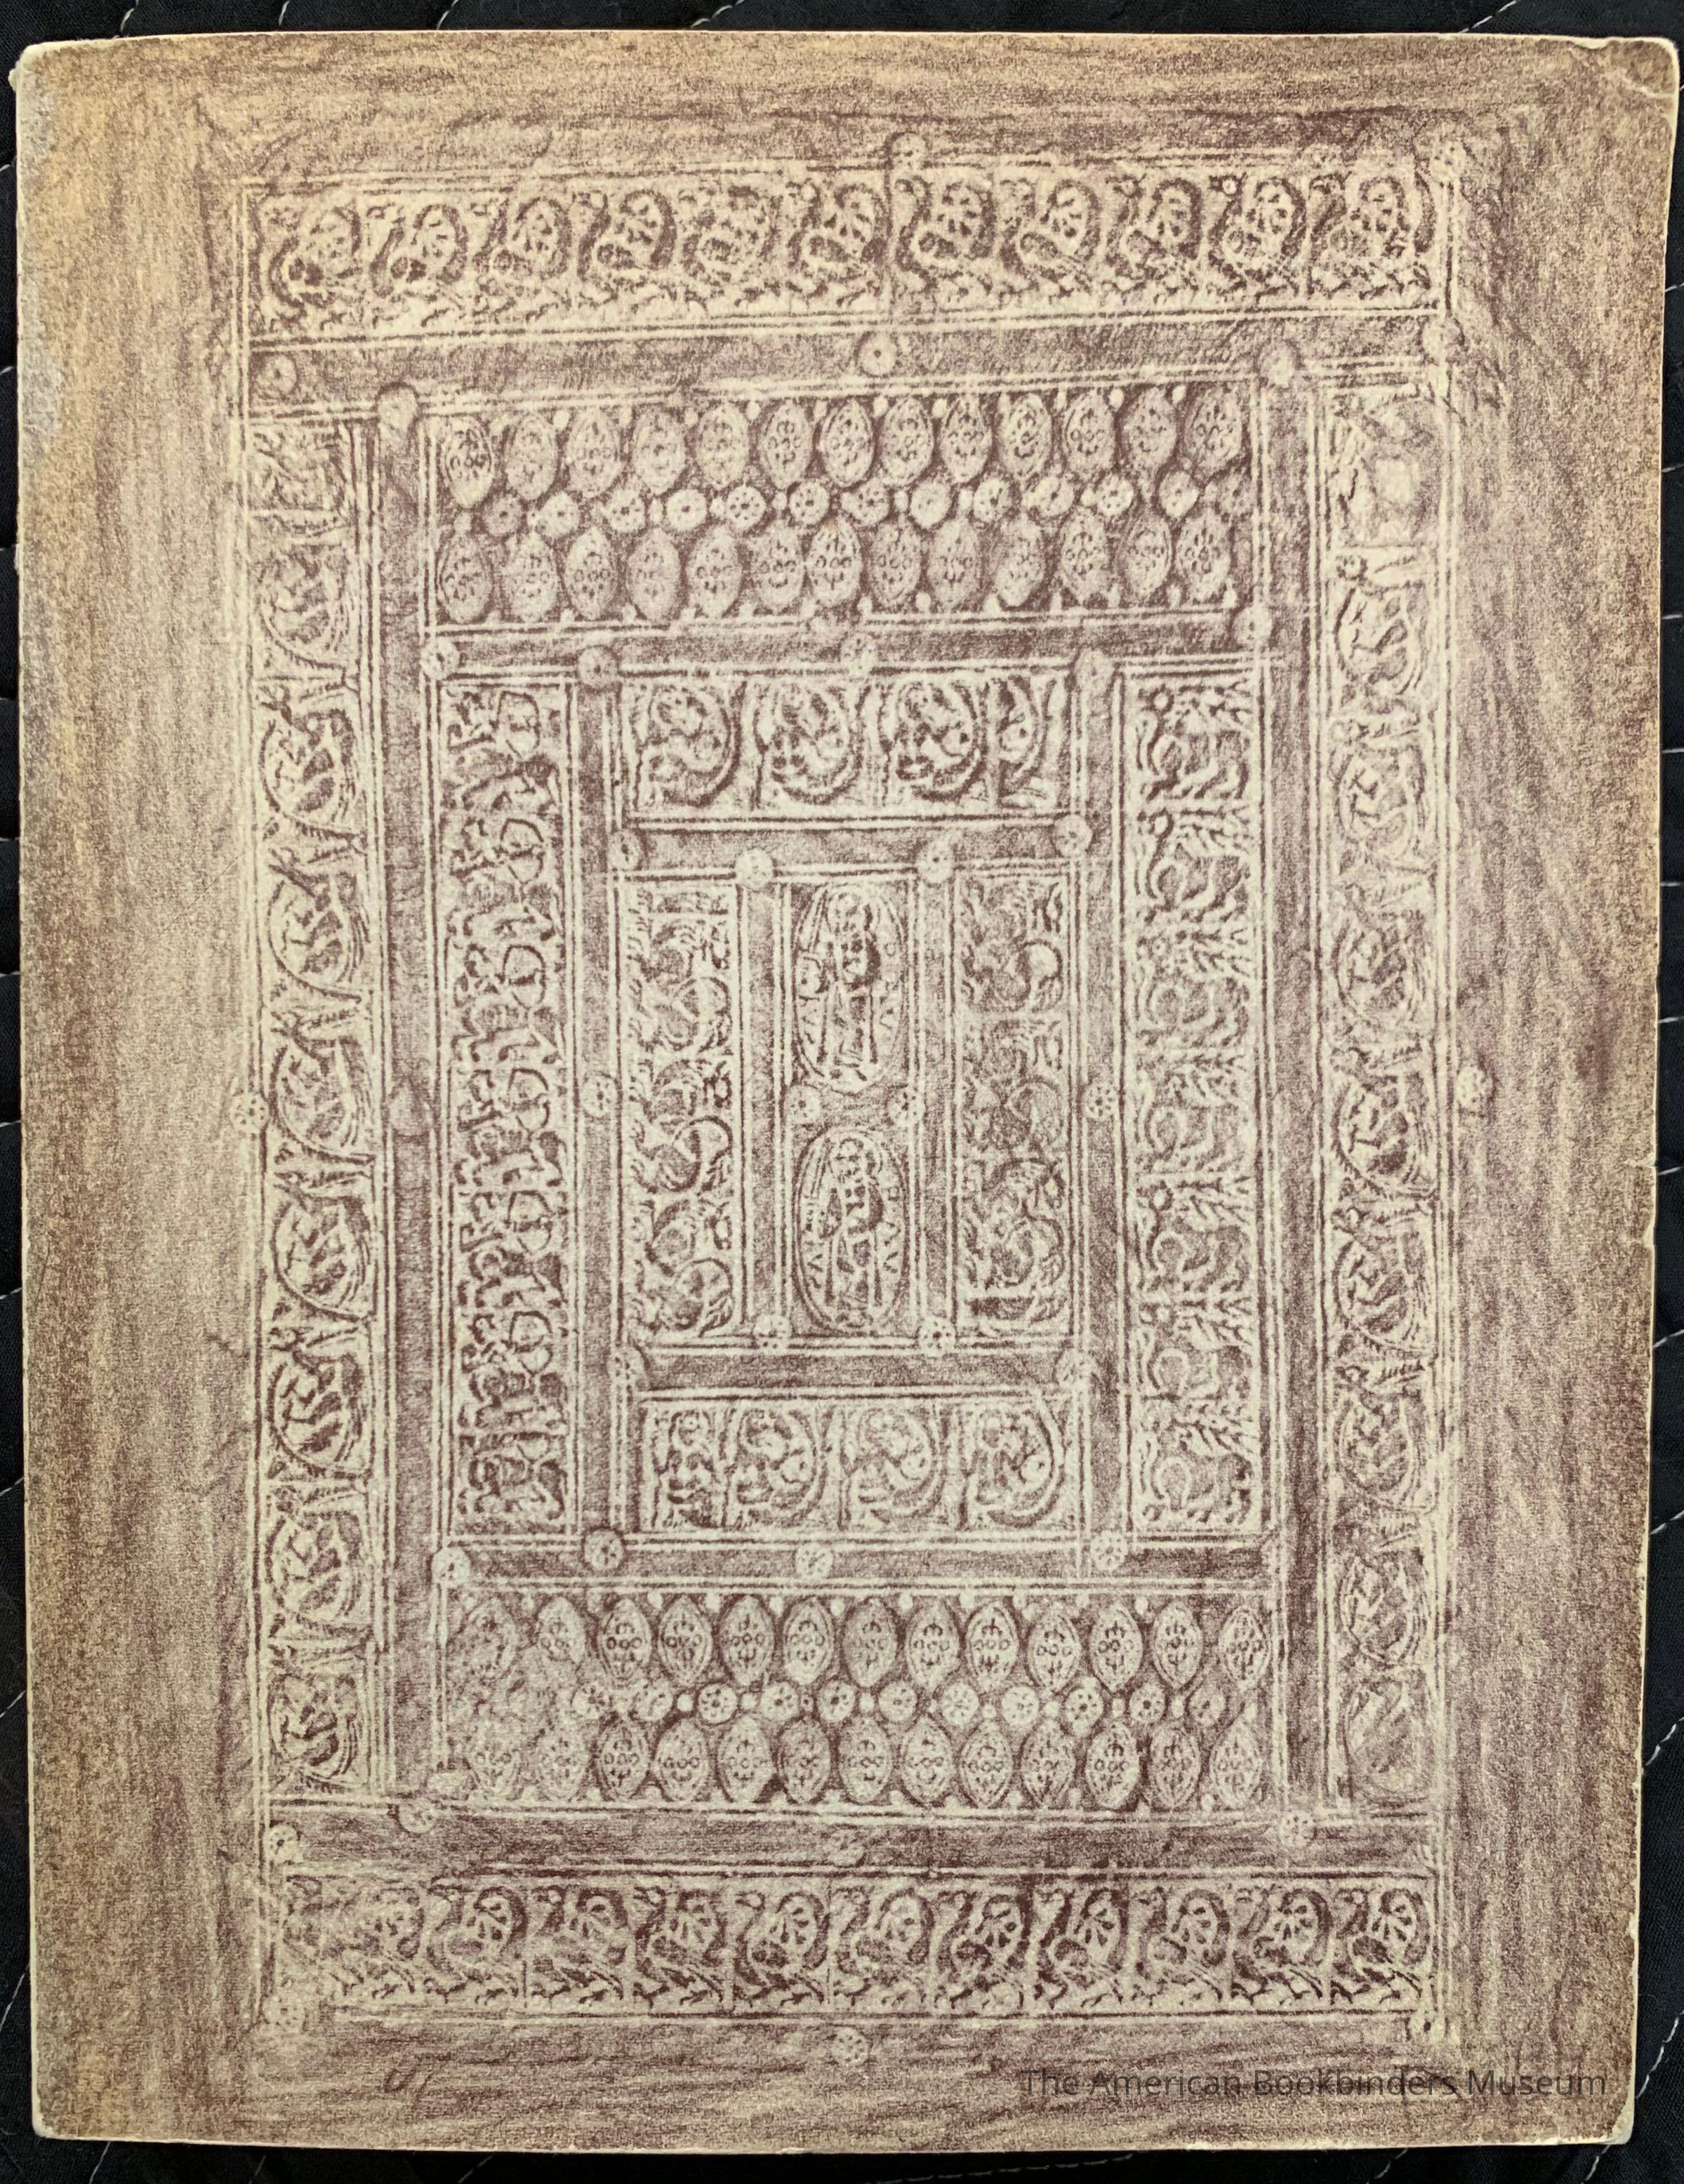 The American Bookbinders Museum